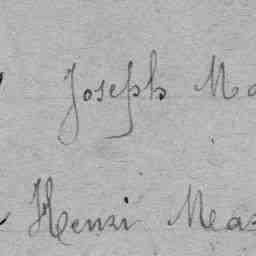 Joseph Ma
Henri Mas